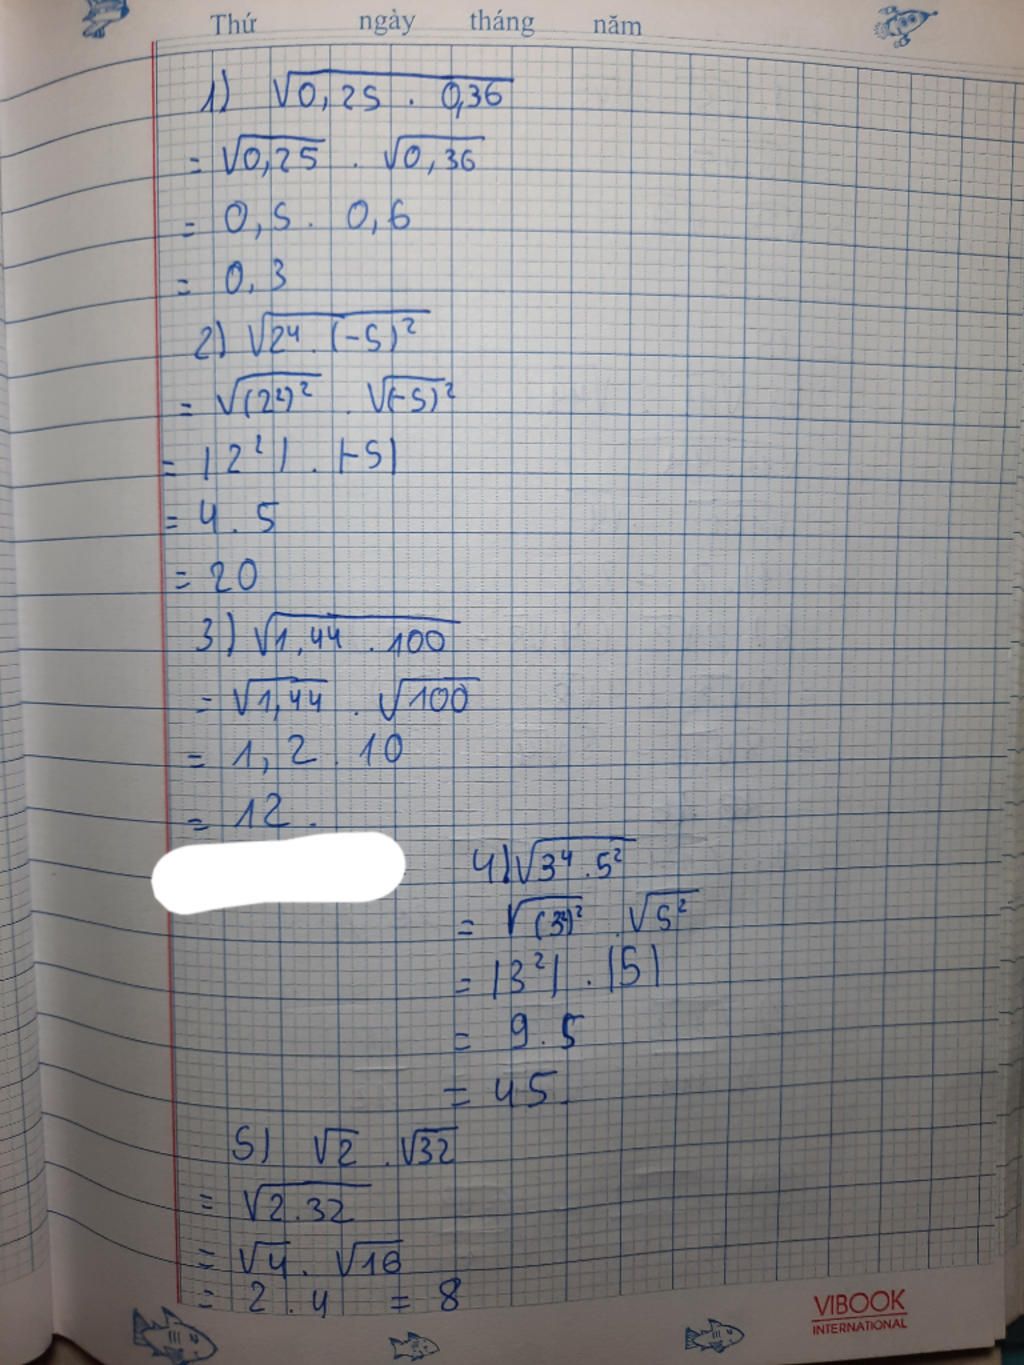 Thứ ngày tháng năm
1) √0,25 . 0,36
= √0,25 . √0,36
= 0,5 . 0,6
= 0,3
2) √2⁴ . (-5)²
= √(2²)² . √(-5)²
= |2²| . |-5|
= 4 . 5
= 20
3) √1,44 . 100
= √1,44 . √100
= 1,2 . 10
= 12 .
4) √3⁴ . 5²
= √(3²)² . √5²
= |3²| . |5|
= 9 . 5
= 45
5) √2 . √32
= √2 . 32
= √4 . √16
= 2 . 4 = 8
VIBOOK
INTERNATIONAL